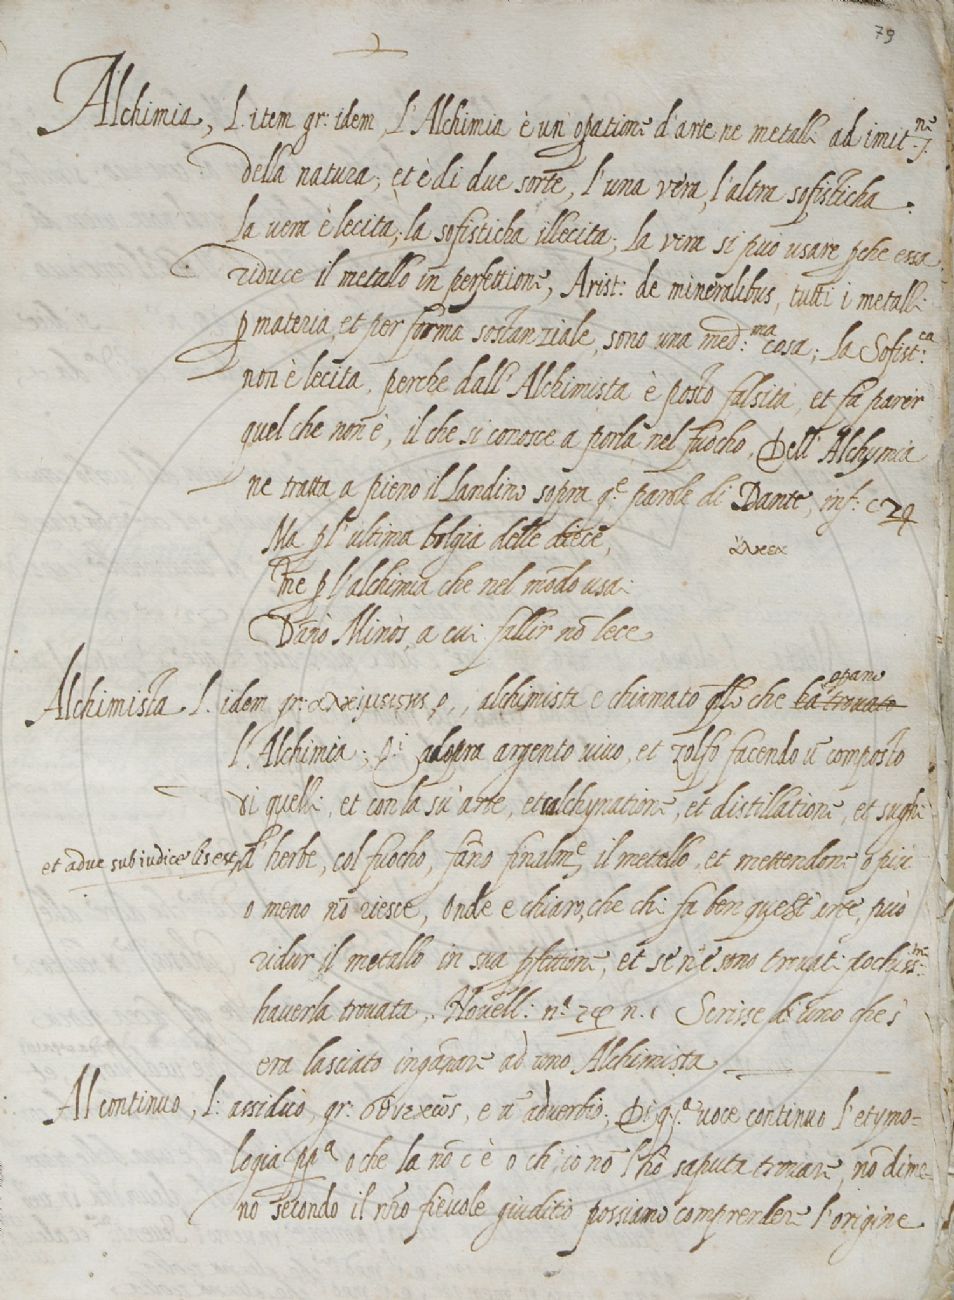 79
Alchimia, L. item gr: idem, L'Alchimia è un' opatione d'arte ne metalli ad imit.ne
della natura; et è di due sorte, l'una vera, l'altra sofisticha
la vera è lecita; la sofisticha illecita; la vera si puo usare pche essa
riduce il metallo in perfettione, Arist: de mineralibus, tutti i metalli
p materia, et per forma sostanziale, sono una med:ma cosa; la Sofist:ca
non è lecita, perche dall' Alchimista è posto falsità, et fa parer
quel che non è, il che si conosce a porla nel fuocho. Dell' Alchymia
ne tratta a pieno il Landino sopra q.e parole di Dante, inf: c 29
Ma p l'ultima bolgia delle diece,
me p l'alchimia che nel mondo usai
Danò Minòs, a cui fallir nō lece
Alchimista L. idem gr: alchimista e chiamato qllo che ha trovato opano
l'Alchimia; adopra argento vivo, et zolfo facendo ū composto
di quelli, et con la su' arte, et calchynatione, et distillatione, et sughi
et adue sub iudice lis est
d' herbe, col fuocho, fano finalm.e il metallo, et mettendone o piu
o meno nō riesce, Onde e chiaro, che chi fa ben quest' arte, può
ridur il metallo in sua pfettione, et se n'e sono trovati pochiss:mi
haverla trovata, Novell: n. Scrisse di uno che s'
era lasciato inganare ad uno Alchimista
Al continuo, L: assiduò, gr: e ū adverbio; Di q.a voce continuo l'etymo-
logia ppa o che la nō c'è o ch'io nō l'hò saputa trovare, nō dime-
no secondo il nro fievole giuditio possiamo comprender l'origine